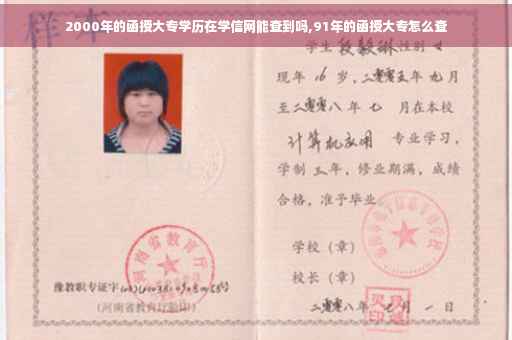 2000年的函授大专学历在学信网能查到吗,91年的函授大专怎么查
样本
学生段毅琳性别女
现年 16 岁,二零零五年 九月
至二零零八年 七 月在本校
计算机应用 专业学习,
学制 三 年,修业期满,成绩
合格,准予毕业。
学校(章)
校长(章)
河南省教育厅
豫教职专证字
(河南省教育厅验印)
二零零八年 七 月 一 日